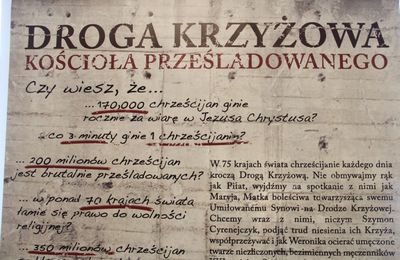 DROGA KRZYŻOWA
KOŚCIOŁA PRZEŚLADOWANEGO
Czy wiesz, że...
... 170,000 chrześcijan ginie
rocznie za wiarę w Jezusa Chrystusa?
... co 3 minuty ginie 1 chrześcijanin?
... 200 milionów chrześcijan
jest brutalnie prześladowanych?
... w ponad 70 krajach świata
łamie się prawo do wolności
religijnej?
... 350 milionów chrześcijan
W 75 krajach świata chrześcijanie każdego dnia
kroczą Drogą Krzyżową. Nie obmywajmy rąk
jak Piłat, wyjdźmy na spotkanie z nimi jak
Maryja, Matka boleściwa towarzysząca swemu
Umiłowanemu Synowi na Drodze Krzyżowej.
Chcemy wraz z nimi, niczym Szymon
Cyrenejczyk, podjąć trud niesienia ich Krzyża,
współprzeżywać i jak Weronika ocierać umęczone
twarze niezliczonych, bezimiennych męczenników